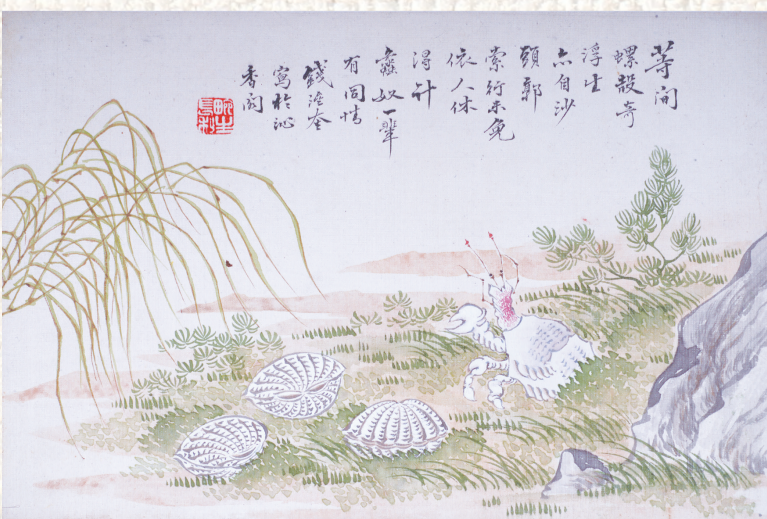 等闲
螺殼寄
浮生
亦自沙
頭郭
索行未免
依人休
得計
蠡奴一輩
有同情
錢
寫於沁
香閣